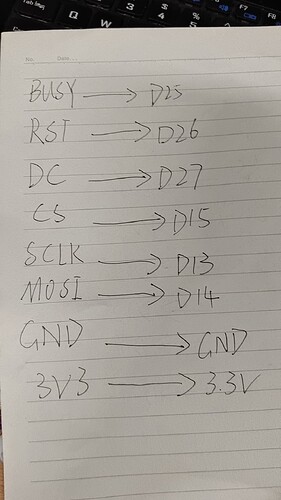 No. Date
BUSY → D25
RST → D26
DC → D27
CS → D15
SCLK → D13
MOSI → D14
GND → GND
3V3 → 3.3V